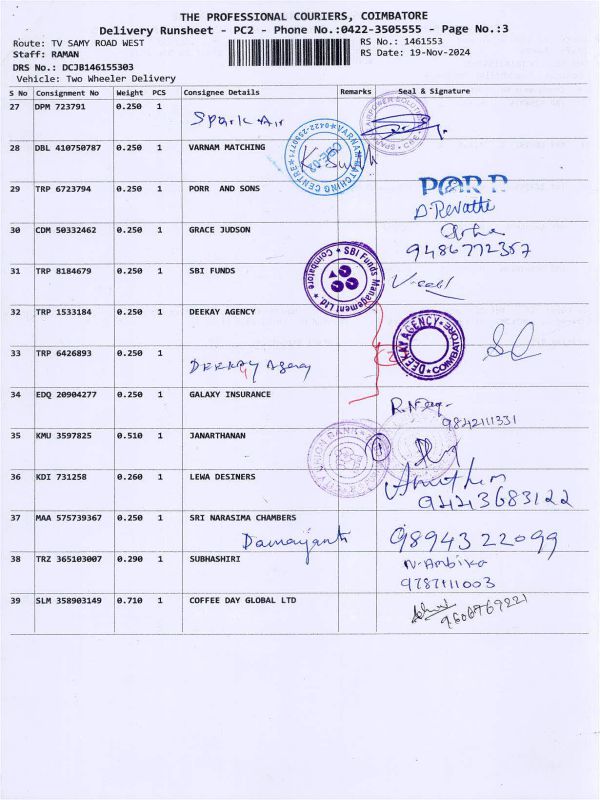 THE PROFESSIONAL COURIERS, COIMBATORE
Delivery Runsheet - PC2 - Phone No.:0422-3505555 - Page No.:3
Route: TV SAMY ROAD WEST
Staff: RAMAN
RS No.: 1461553
RS Date: 19-Nov-2024
DRS No.: DCJB146155303
Vehicle: Two Wheeler Delivery
S No Consignment No Weight PCS Consignee Details Remarks Seal & Signature
27 DPM 723791 0.250 1 Spark Air
28 DBL 410750787 0.250 1 VARNAM MATCHING
VARNAM MATCHING CENTRE
29 TRP 6723794 0.250 1 PORR AND SONS PORR
D. Revathi
30 CDM 50332462 0.250 1 GRACE JUDSON
9486772357
31 TRP 8184679 0.250 1 SBI FUNDS
SBI Funds Management Ltd Coimbatore
32 TRP 1533184 0.250 1 DEEKAY AGENCY
DEEKAY AGENCY COIMBATORE
33 TRP 6426893 0.250 1 DEEKAY Agency
34 EDQ 20904277 0.250 1 GALAXY INSURANCE
9842111331
35 KMU 3597825 0.510 1 JANARTHANAN
36 KDI 731258 0.260 1 LEWA DESINERS
9443683122
37 MAA 575739367 0.250 1 SRI NARASIMA CHAMBERS
Damayanti 9894322099
38 TRZ 365103007 0.290 1 SUBHASHIRI
N. Ambika
9787111003
39 SLM 358903149 0.710 1 COFFEE DAY GLOBAL LTD
9606769221